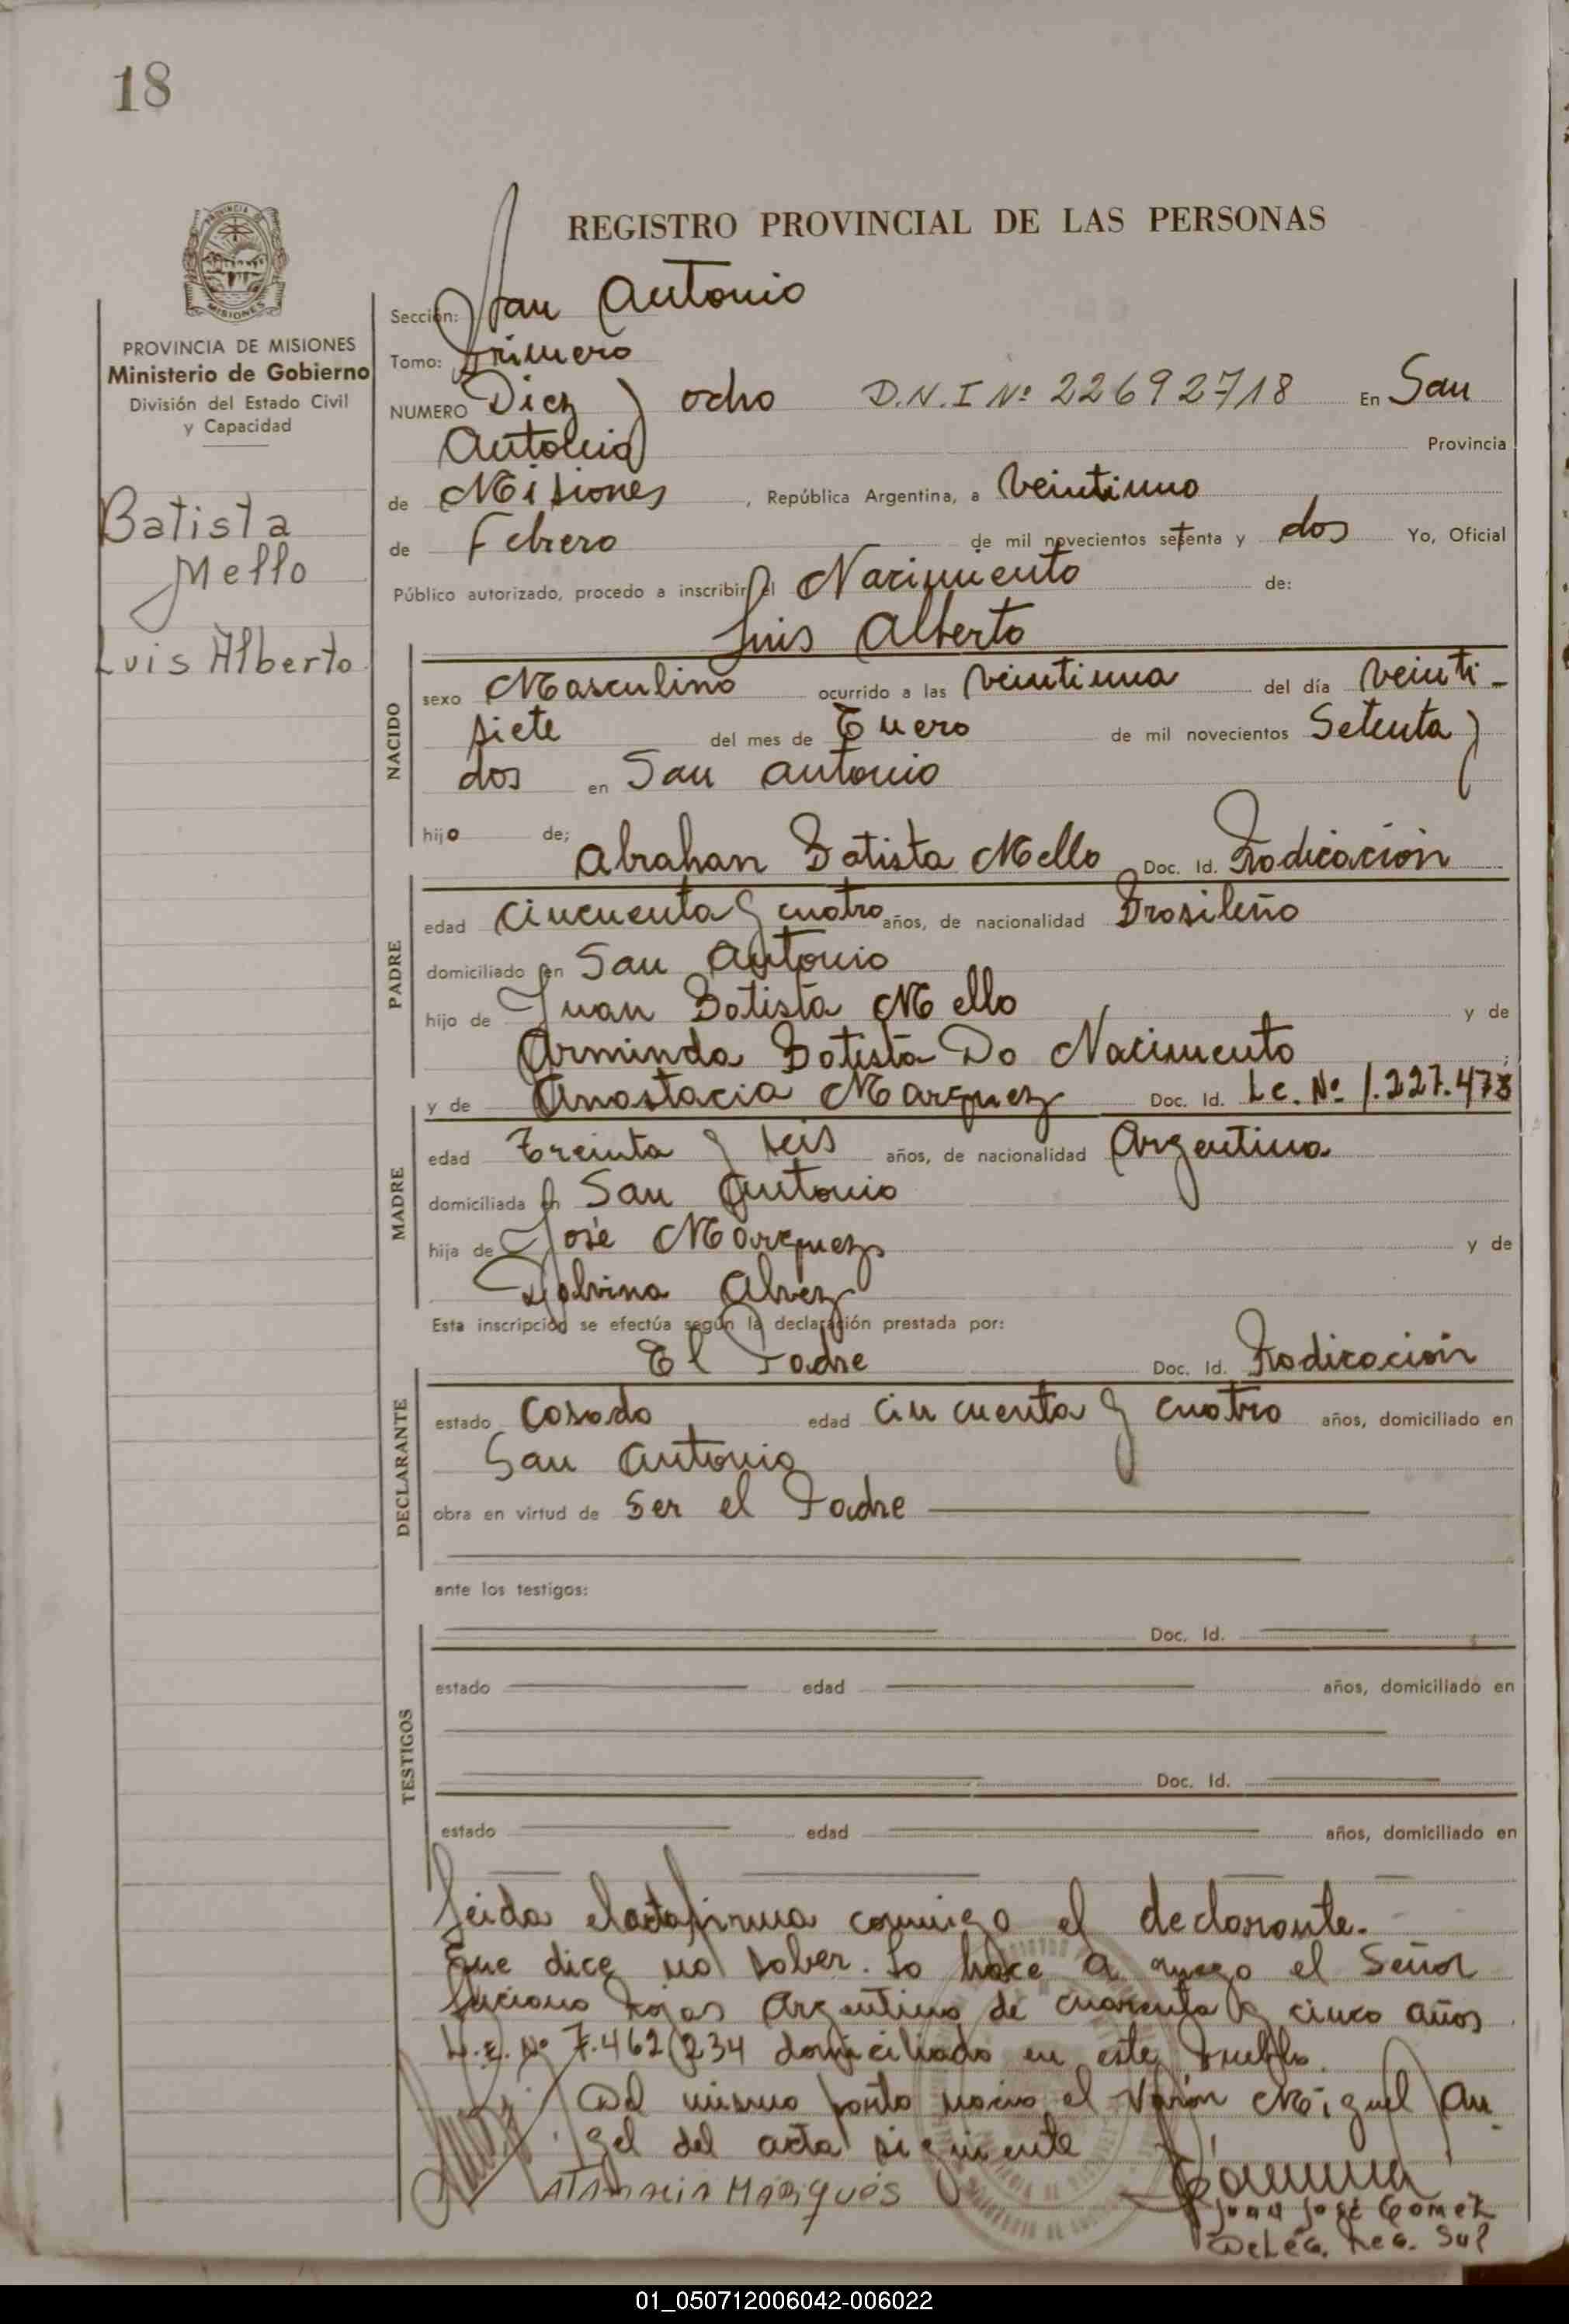 18
REGISTRO PROVINCIAL DE LAS PERSONAS
PROVINCIA DE MISIONES
Ministerio de Gobierno
División del Estado Civil
y Capacidad
Batista
Mello
Luis Alberto
Sección: San Antonio
Tomo: Primero
NUMERO Diez y ocho D.N.I Nº 22692718 En San
Antonio Provincia
de Misiones, República Argentina, a Veintiuno
de Febrero de mil novecientos setenta y dos Yo, Oficial
Público autorizado, procedo a inscribir el Nacimiento de:
Luis Alberto
NACIDO
sexo Masculino ocurrido a las veintiuna del día veinti-
siete del mes de Enero de mil novecientos Setenta y
dos en San Antonio
hijo de; Abrahan Batista Mello Doc. Id. Radicación
PADRE
edad Cincuenta y cuatro años, de nacionalidad Brasileño
domiciliado en San Antonio
hijo de Juan Batista Mello y de
Arminda Batista Do Nacimento ;
y de Anastacia Marquez Doc. Id. Lc. Nº 1.227.473
MADRE
edad Treinta y seis años, de nacionalidad Argentina
domiciliada en San Antonio
hija de José Marquez y de
Alvez
Esta inscripción se efectúa según la declaración prestada por:
El Padre Doc. Id. Radicación
DECLARANTE
estado Casado edad Cincuenta y cuatro años, domiciliado en
San Antonio
obra en virtud de Ser el Padre
ante los testigos:
TESTIGOS
Doc. Id.
estado edad años, domiciliado en
Doc. Id.
estado edad años, domiciliado en
Leida el acta firma conmigo el declarante.
que dice no saber. Lo hace a ruego el Señor
Luciano Rojas Argentino de cuarenta y cinco años
L.E. Nº 7.462.234 domiciliado en este Pueblo.
Del mismo parto nacio el Varón Miguel An-
gel del acta siguiente
Marques
Juan José Gomez
Deleg. Reg. Sul
01_050712006042-006022